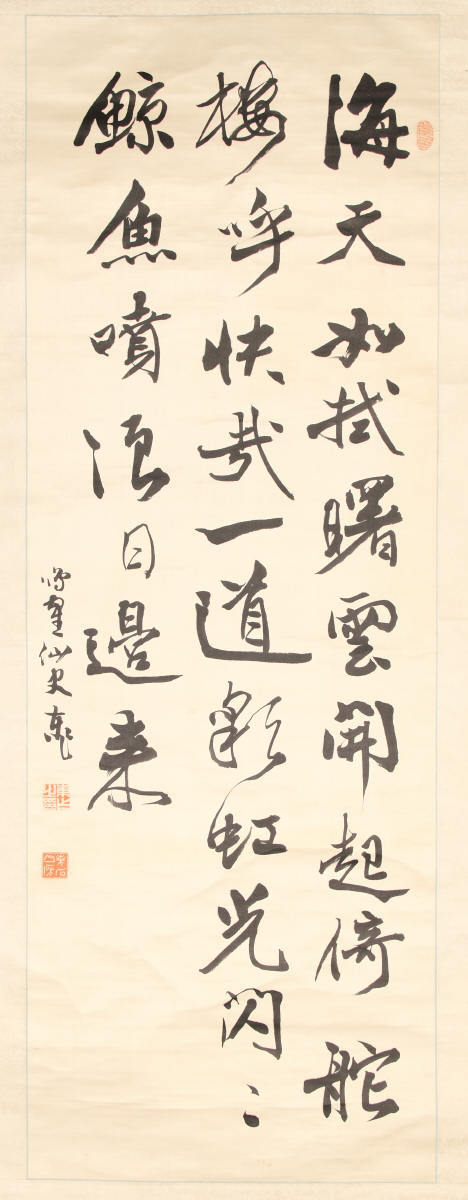 海天如拭曙雲開起倚舵
樓呼快哉一道彩虹光閃〻
鯨魚噴浪日邊来
鳴鶴仙史東作